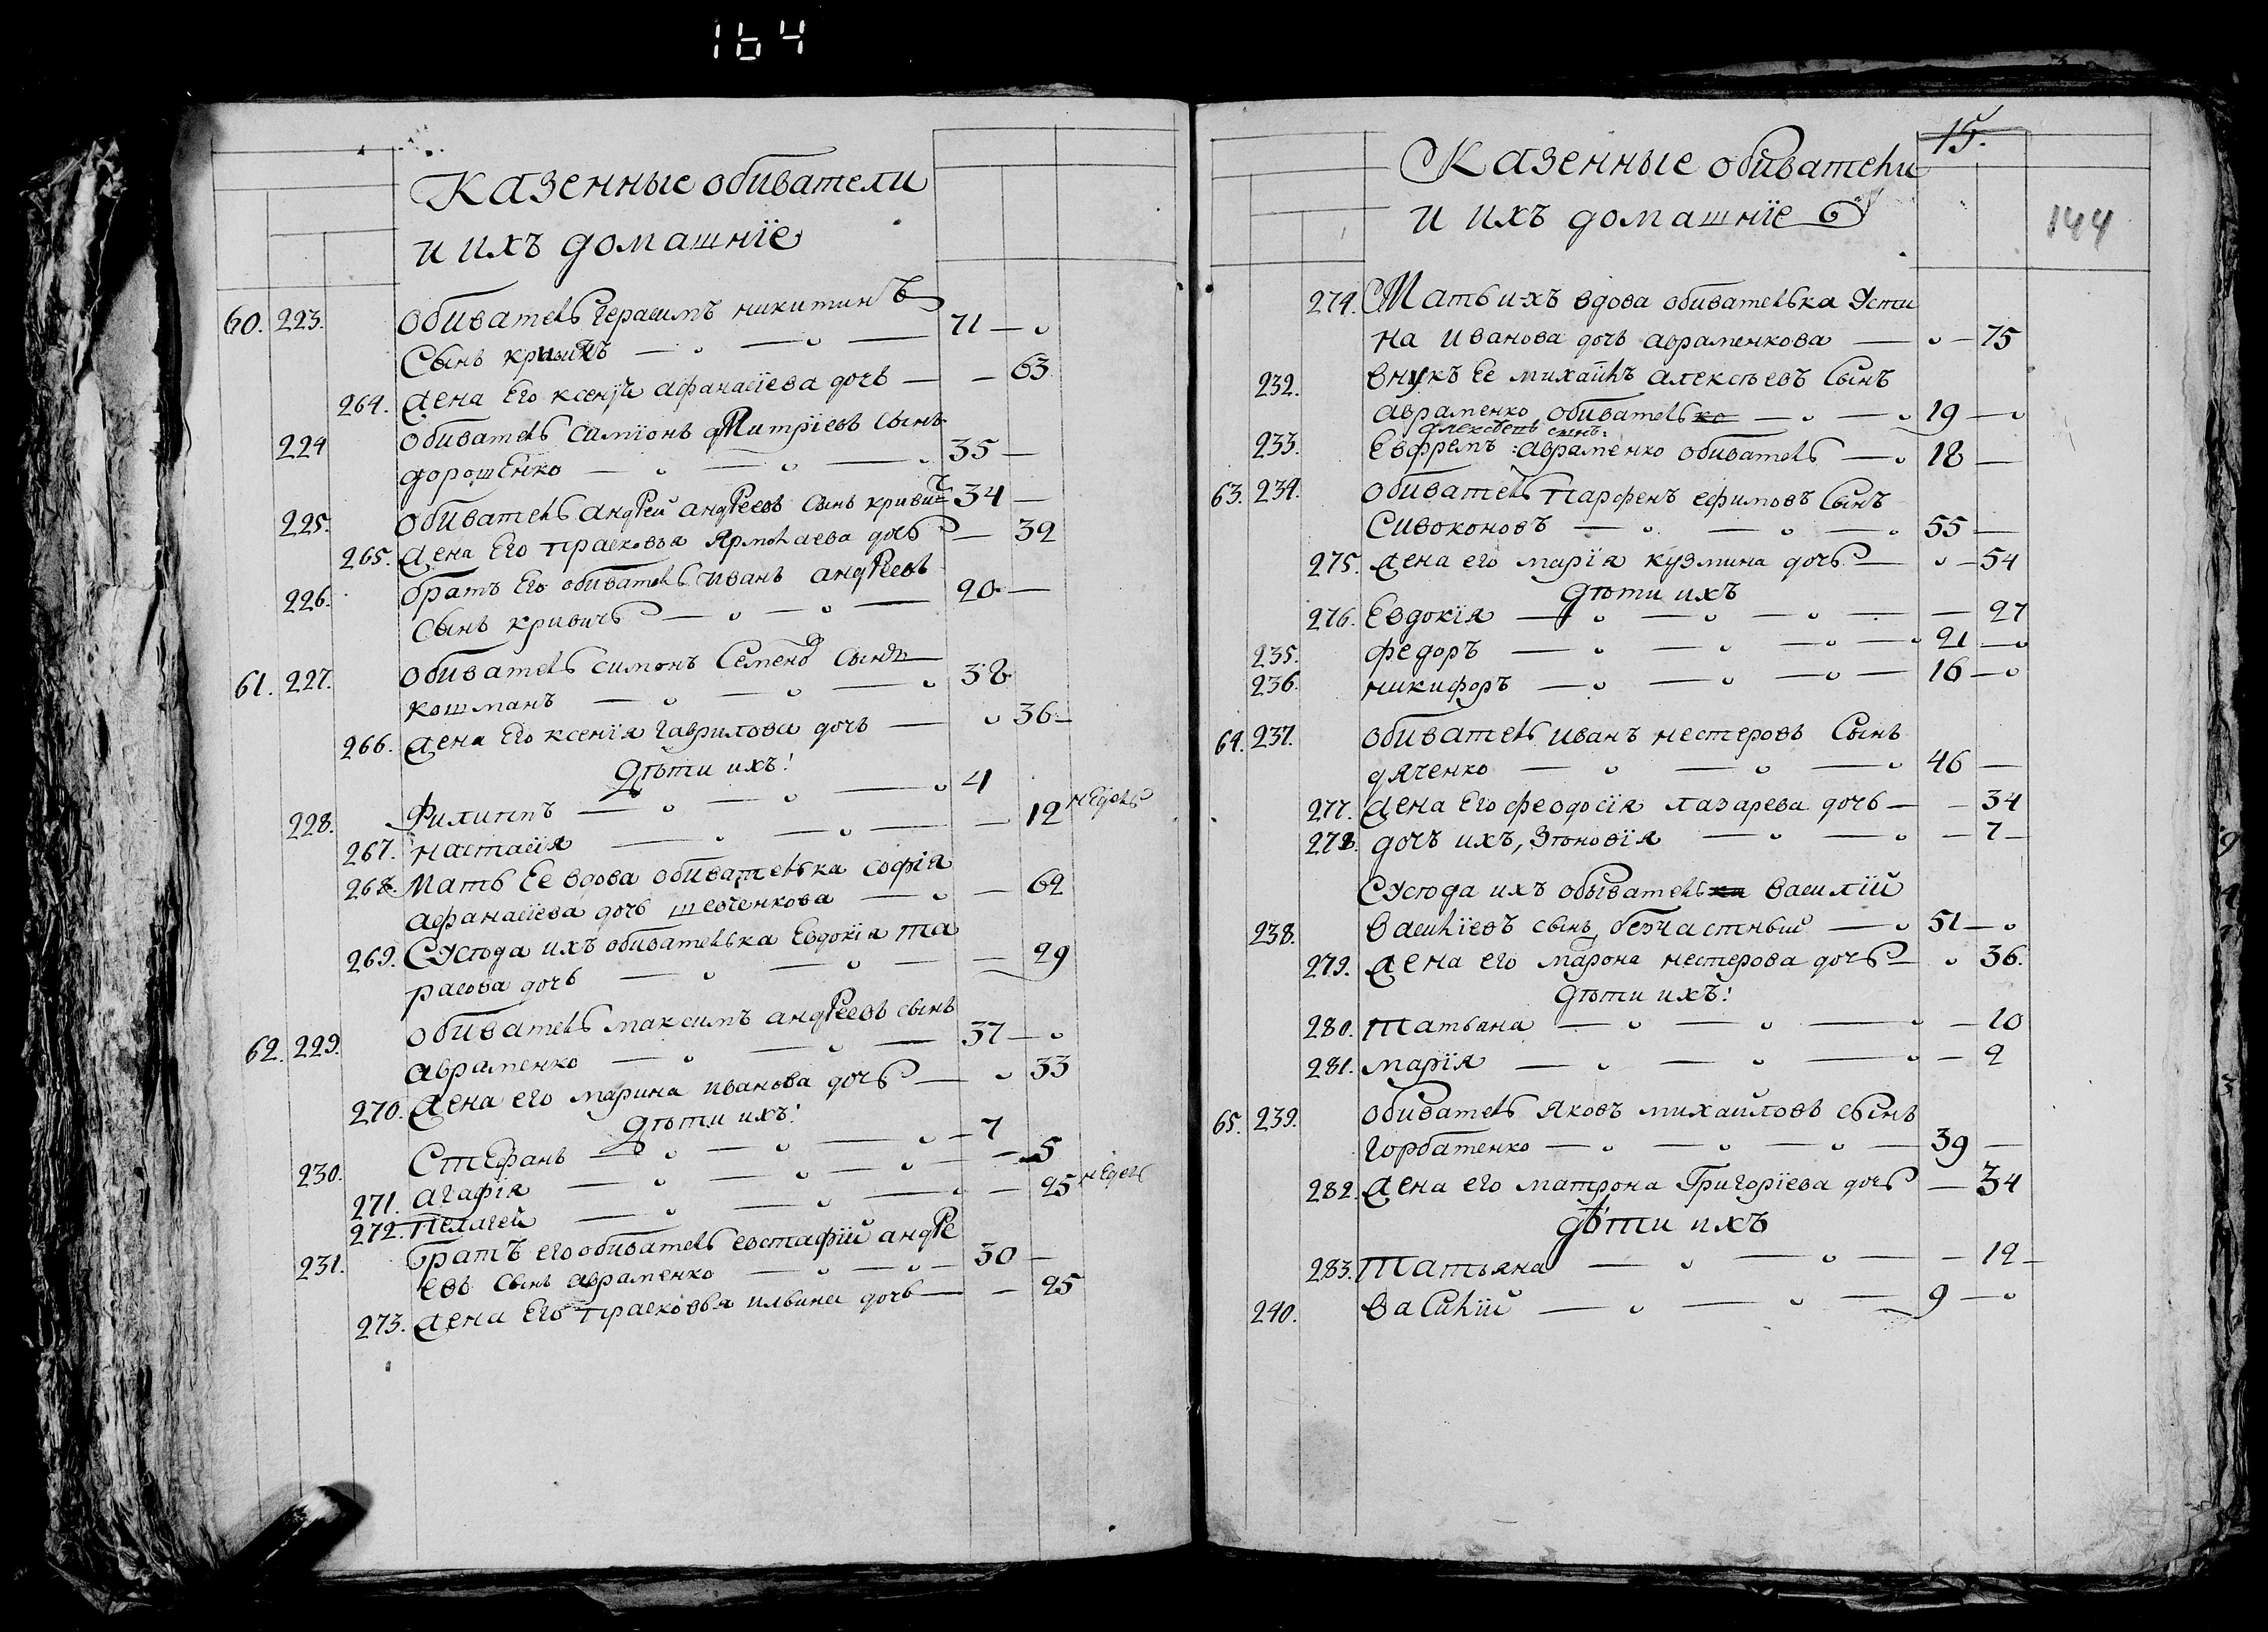 164
Казенные обиватели
и ихъ домашніе
60. 223. обиватель Герасимъ никитинъ
Сынъ 71 —
264. Жена Его ксенія афанасіева дочь — — 63
224 обиватель Симіонъ дмитріевъ Сынъ
дорошЕнко — 35 —
225. обиватель андрей андреевъ Сынъ кривичъ 34 —
265. Жена Его прасковья Ярмолаева дочь — 32
226. братъ Его обиватель иванъ андреевъ
Сынъ кривичъ — 20 —
61. 227. обиватель симонъ Семеновъ Сынъ
кошманъ — 38
266. Жена Его ксенія гаврилова дочь — 36 —
Дѣти ихъ:
228. Филиппъ — 4
267. настасія — 12 нЕдель
268. Мать Ее вдова обивателька софія
афанасіева дочь шевченкова — 62
269. Сусюда ихъ обивателька Евдокія та
расова дочь — 29
62. 229. обиватель максимъ андреевъ сынъ
авраменко — 37 —
270. Жена его марина иванова дочь — 33
Дѣти ихъ:
230. СтЕфанъ — 7
271. агафія — 5
272. пелагея — 25 нЕдель
231. братъ его обиватель евстафій андре
евъ Сынъ авраменко — 30 —
273. Жена Его прасковья ильина дочь — 25
15.
Казенные обиватели
и ихъ домашніе
144
274. Мать ихъ вдова обивателька Усти
на иванова дочь авраменкова — 75
232. внукъ Ее михайлъ алексѣевъ Сынъ
авраменко обиватель — 19 —
алексѣевъ сынъ
233. Евфремъ авраменко обиватель — 18 —
63. 234. обиватель парфенъ ефимовъ Сынъ
Сивоконовъ — 55 —
275. Жена его марія кузмина дочь — 54
Дѣти ихъ
276. Евдокія — 27
235. федоръ — 21 —
236. никифоръ — 16 —
64. 237. обиватель иванъ нестеровъ Сынъ
дяченко — 46 —
277. Жена Его феодосія лазарева дочь — 34
278. дочь ихъ, Зѣновія — 7 —
Сусюда ихъ обыватель василій
238. василіевъ сынъ безчастный — 51 —
279. Жена его марона нестерова дочь — 36.
Дѣти ихъ:
280. татьана — 10
281. марія — 2
65. 239. обиватель яковъ михайловъ сынъ
горбатенко — 39 —
282. Жена его матрона Григоріева дочь — 34
дѣти ихъ
283. татьяна — 12 —
240. василій — 9 —